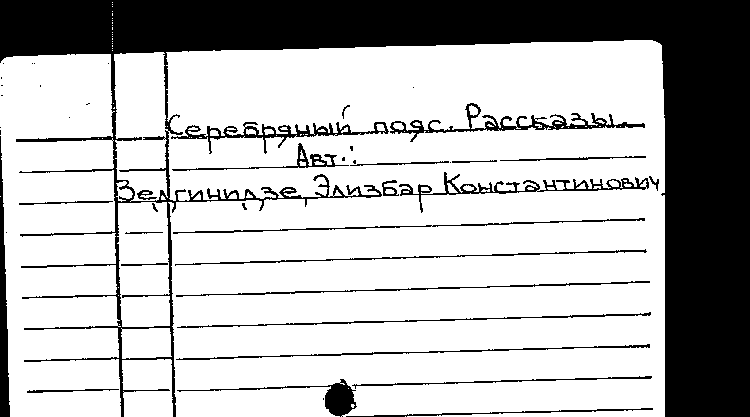 Серебряный пояс. Рассказы.
Авт.:
Зедгинидзе, Элизбар Константинович.